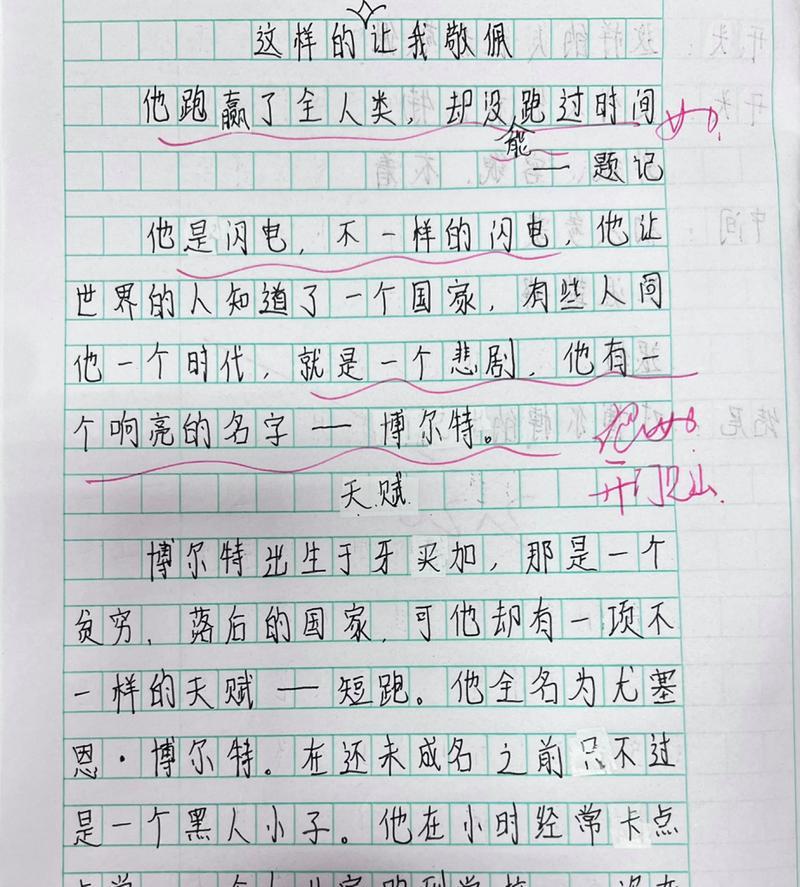 这样的让我敬佩
他跑赢了全人类，却没能跑过时间
好。
——题记
他是闪电，不一样的闪电，他让
世界的人知道了一个国家，有些人同
他一个时代，就是一个悲剧，他有一
个响亮的名字——博尔特。
开门见山
天赋
博尔特出生于牙买加，那是一个
贫穷、落后的国家，可他却有一项不
一样的天赋——短跑。他全名为尤塞
恩·博尔特。在还未成名之前只不过
是一个黑人小子。他在小时经常卡点